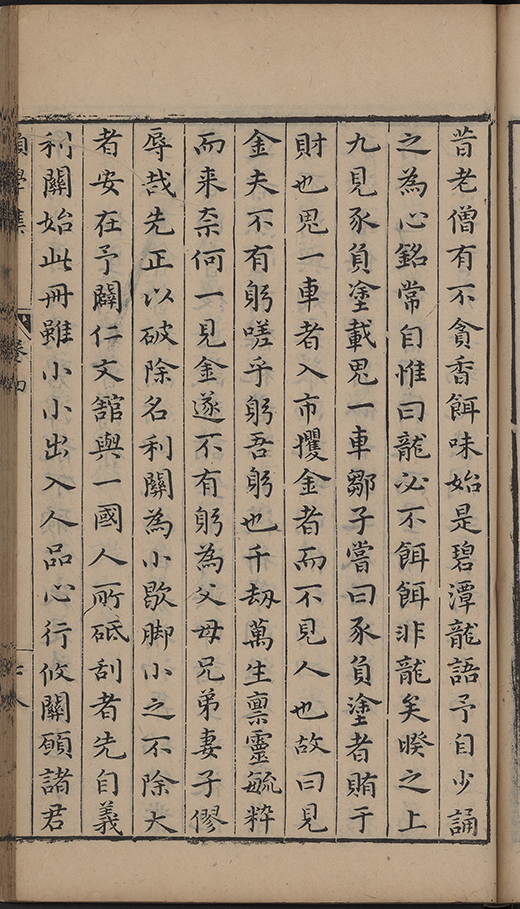 昔老僧有不貪香餌味始是碧潭龍語予自少誦
之為心銘常自惟曰龍必不餌餌非龍矣暌之上
九見豕負塗載鬼一車鄒子嘗曰豕負塗者賄于
財也鬼一車者入市攫金者而不見人也故曰見
金夫不有躬嗟乎躬吾躬也千劫萬生禀靈毓粹
而来柰何一見金遂不有躬為父母兄弟妻子僇
辱哉先正以破除名利關為小歇脚小之不除大
者安在予闢仁文舘與一國人所砥刮者先自義
利關始此冊雖小小出入人品心行攸關願諸君
願學集 卷四